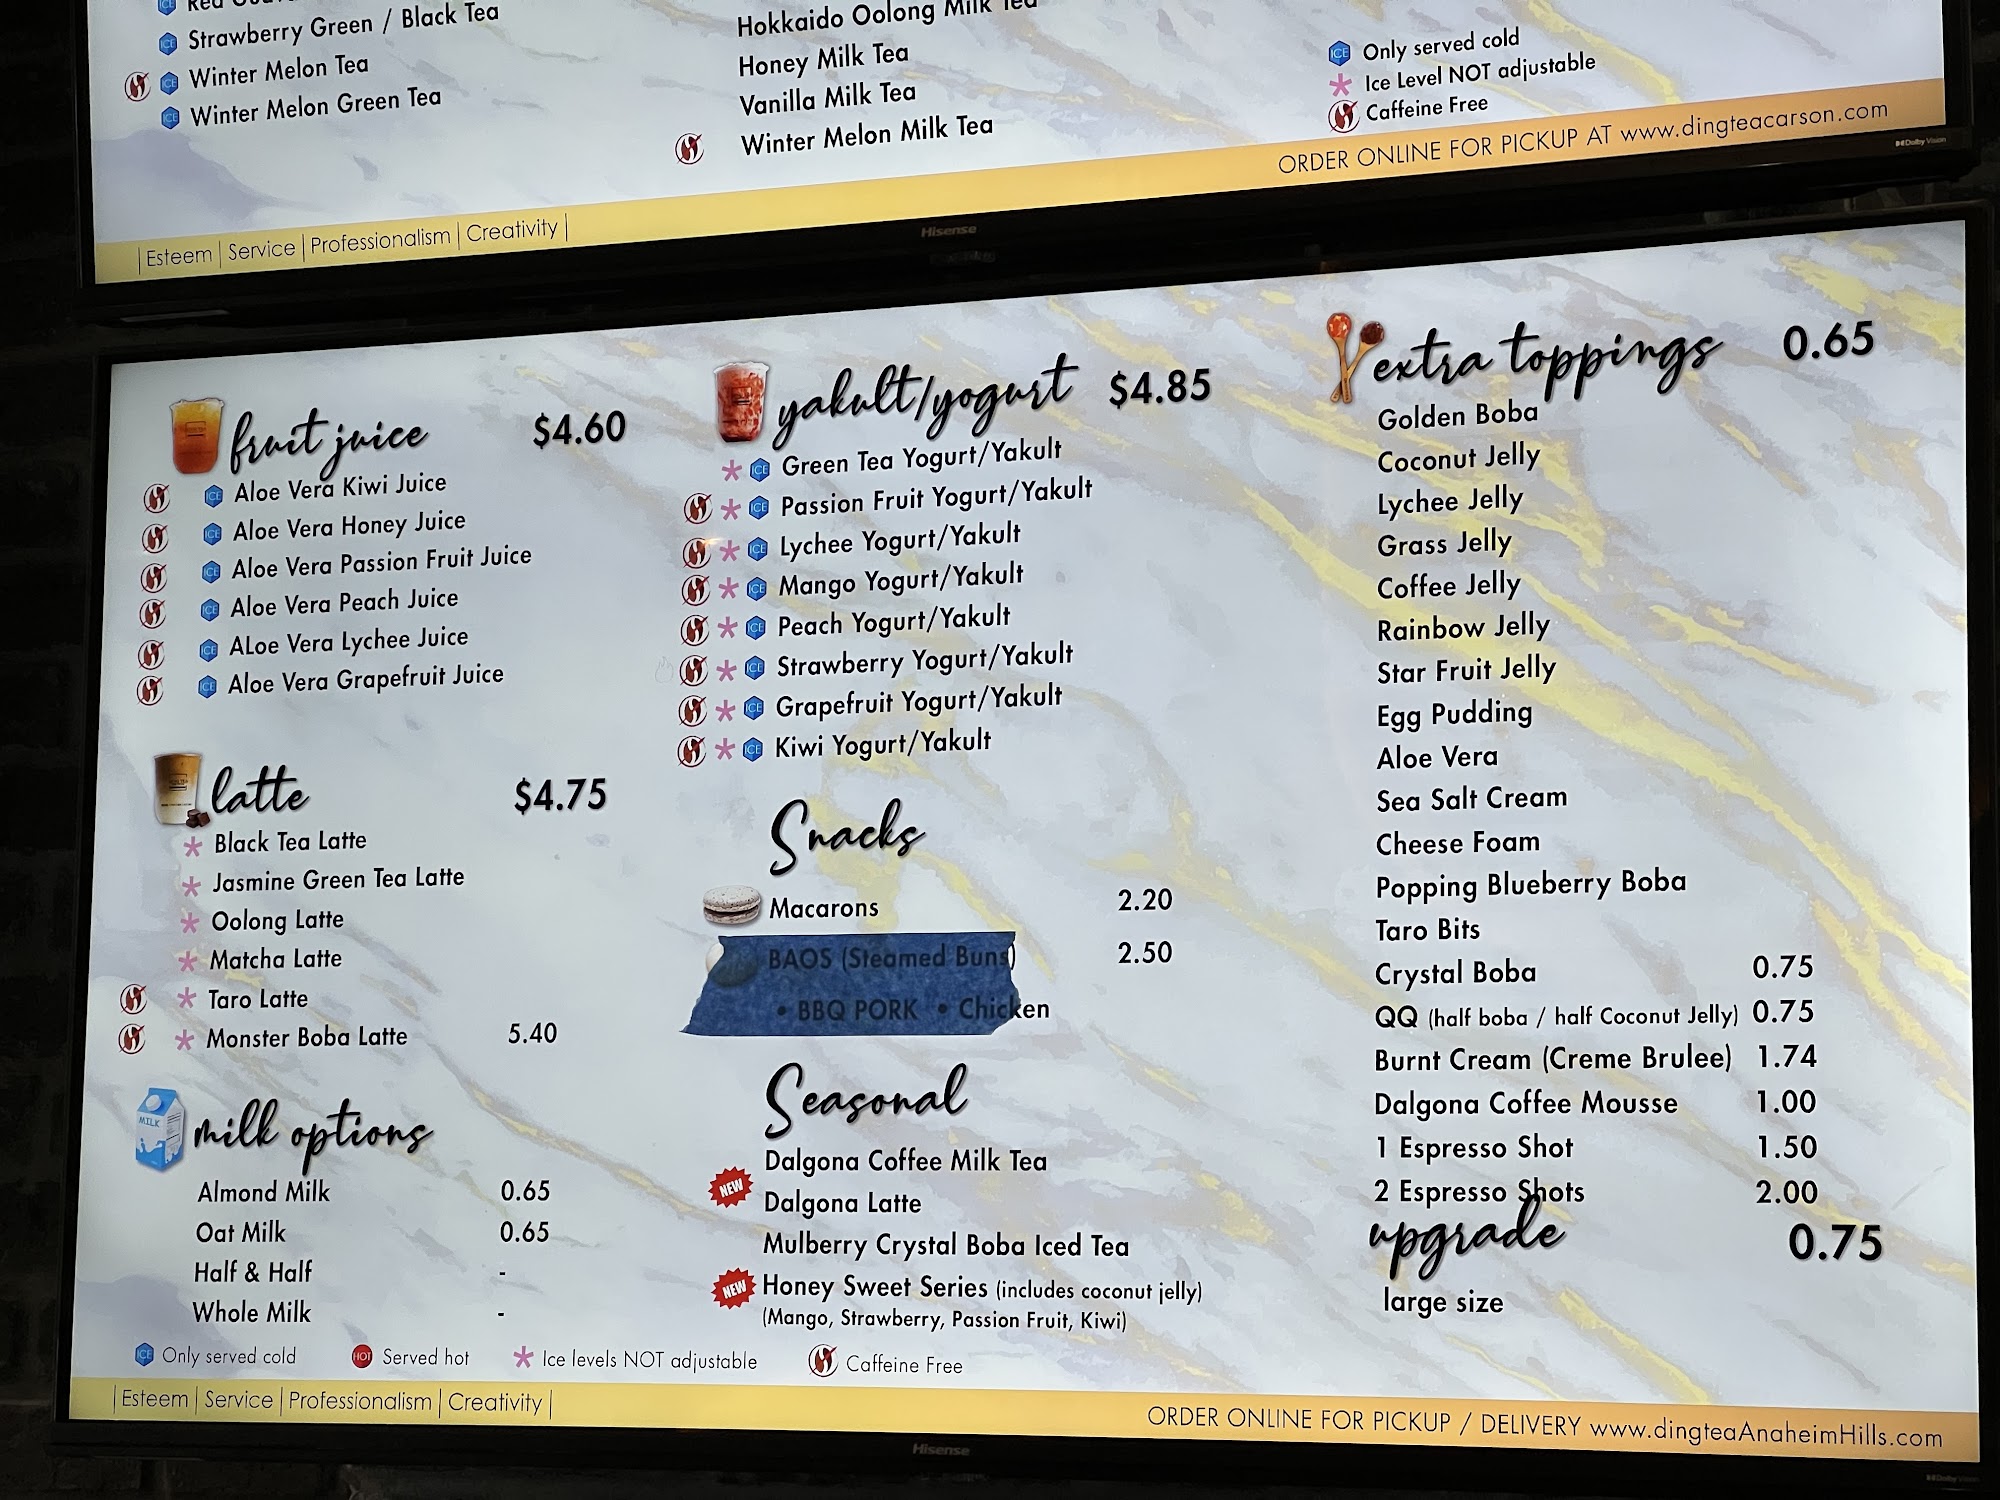 Strawberry Green / Black Tea
Winter Melon Tea
Winter Melon Green Tea
Hokkaido Oolong Milk Tea
Honey Milk Tea
Vanilla Milk Tea
Winter Melon Milk Tea
ICE Only served cold
* Ice Level NOT adjustable
Caffeine Free
ORDER ONLINE FOR PICKUP AT www.dingteacarson.com
|Esteem|Service|Professionalism|Creativity|
Hisense
Dolby Vision
fruit juice $4.60
ICE Aloe Vera Kiwi Juice
ICE Aloe Vera Honey Juice
ICE Aloe Vera Passion Fruit Juice
ICE Aloe Vera Peach Juice
ICE ALoe Vera Lychee Juice
ICE Aloe Vera Grapefruit Juice
latte $4.75
* Black Tea Latte
* Jasmine Green Tea Latte
* Oolong Latte
* Matcha Latte
* Taro Latte
* Monster Boba Latte 5.40
MILK
milk options
Almond Milk 0.65
Oat Milk 0.65
Half & Half -
Whole Milk -
yakult/yogurt $4.85
* ICE Green Tea Yogurt/Yakult
* ICE Passion Fruit Yogurt/Yakult
* ICE Lychee Yogurt/Yakult
* ICE Mango Yogurt/Yakult
* ICE Peach Yogurt/Yakult
* ICE Strawberry Yogurt/Yakult
* ICE Grapefruit Yogurt/Yakult
* ICE Kiwi Yogurt/Yakult
Snacks
Macarons 2.20
BAOS (Steamed Buns) 2.50
• BBQ PORK • Chicken
Seasonal
Dalgona Coffee Milk Tea
NEW
Dalgona Latte
Mulberry Crystal Boba Iced Tea
NEW Honey Sweet Series (includes coconut jelly)
(Mango, Strawberry, Passion Fruit, Kiwi)
extra toppings 0.65
Golden Boba
Coconut Jelly
Lychee Jelly
Grass Jelly
Coffee Jelly
Rainbow Jelly
Star Fruit Jelly
Egg Pudding
Aloe Vera
Sea Salt Cream
Cheese Foam
Popping Blueberry Boba
Taro Bits
Crystal Boba 0.75
QQ (half boba / half Coconut Jelly) 0.75
Burnt Cream (Creme Brulee) 1.74
Dalgona Coffee Mousse 1.00
1 Espresso Shot 1.50
2 Espresso Shots 2.00
upgrade 0.75
large size
ICE Only served cold HOT Served hot * Ice levels NOT adjustable Caffeine Free
|Esteem|Service|Professionalism|Creativity|
ORDER ONLINE FOR PICKUP / DELIVERY www.dingteaAnaheimHills.com
Hisense